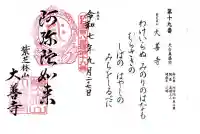 第十九番
大善寺
わけいらぬ みのりのはなも
むらさきの
しばの はやしの
みちをしるべに
令和七年九月二十七日
阿弥陀如来
紫芝林山
大善寺